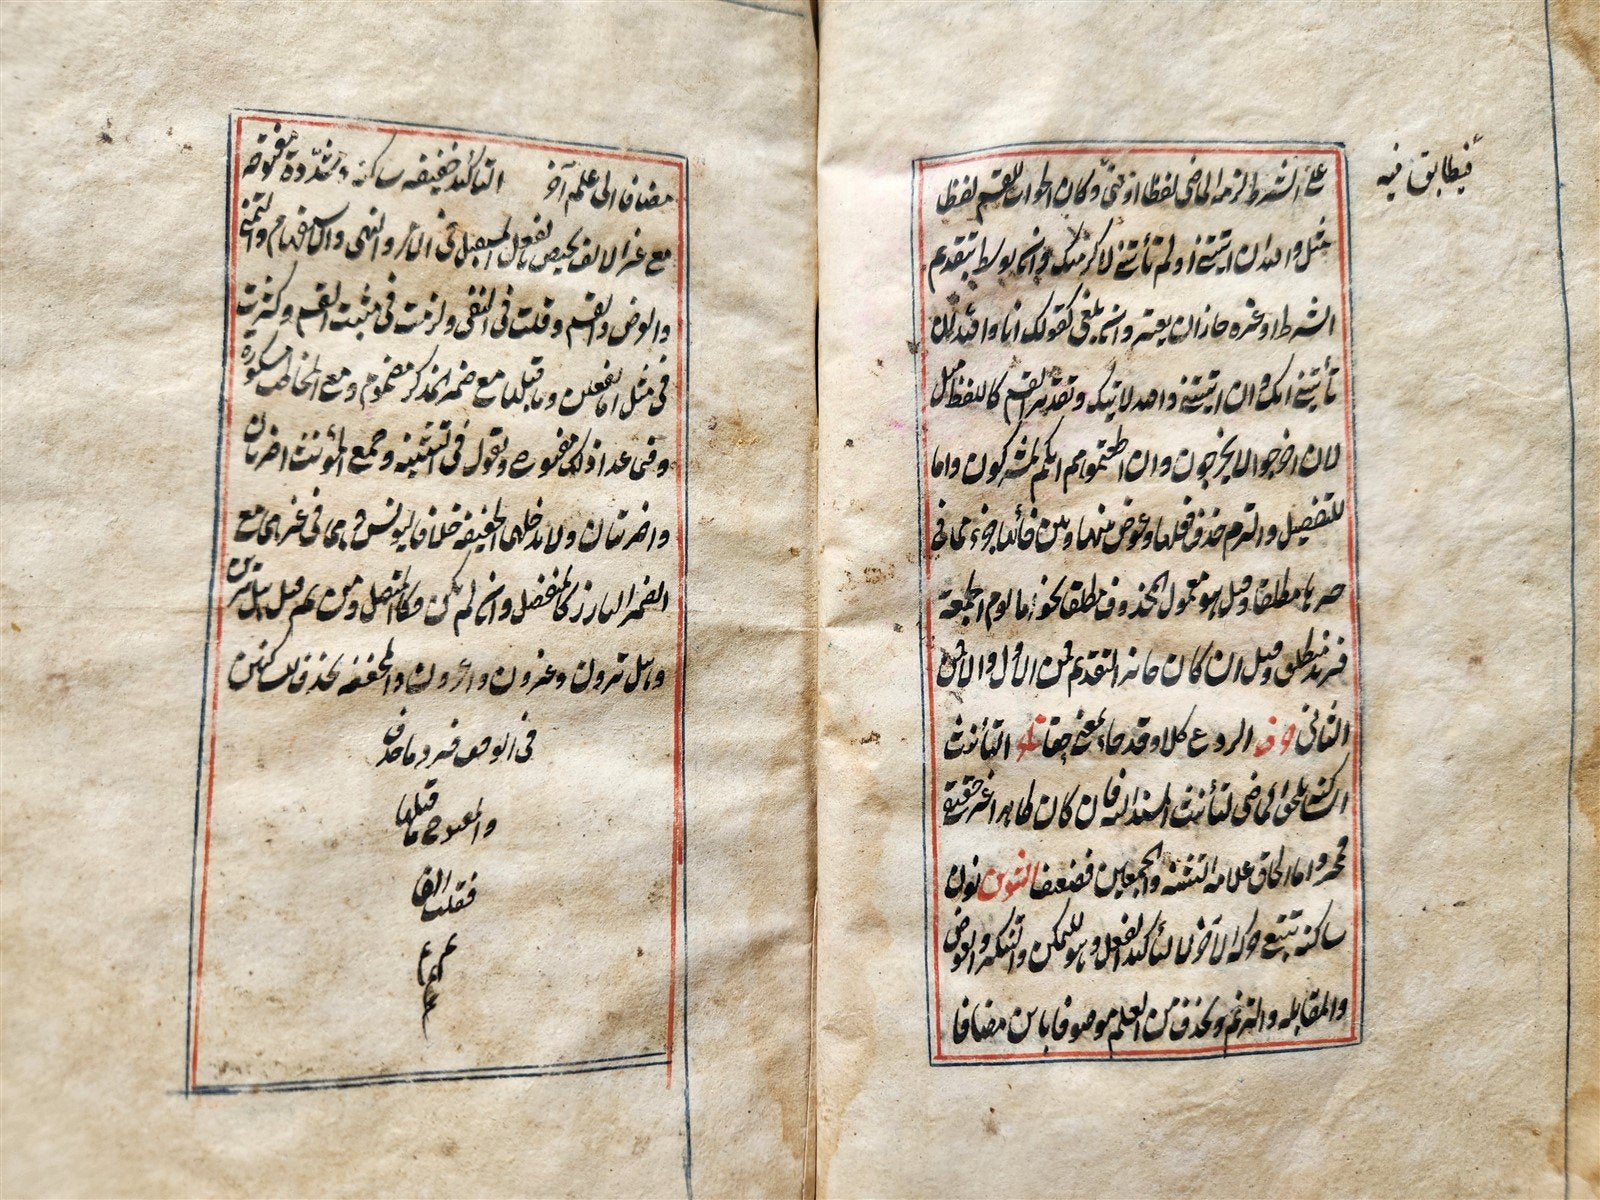 فيطابق فيه
على الشرط لزمه الماضى لفظا او معنى وكان الجواب للقسم لفظا
مثل والله ان اتيتنى او لم تأتنى لاكرمتك وان توسط بتقديم
الشرط او غيره جاز ان يعتبر وان يلغى كقولك انا والله ان
تأتينى اتك وان اتيتنى والله لاتينك وتقدير القسم كاللفظ مثل
لئن اخرجوا لا يخرجون وان اطعتموهم انكم لمشركون واما
للتفصيل والتزم حذف فعلها وعوض بينها وبين فائها جزء مما فى
حيزها مطلقا وقيل هو معمول المحذوف مطلقا نحو اما يوم الجمعة
فزيد منطلق وقيل ان كان جائز التقديم فمن الاول والا فمن
الثانى حرف الردع كلا وقد جاء بمعنى حقا تاء التأنيث
الساكنة تلحق الماضى لتأنيث المسند اليه فان كان ظاهرا غير حقيقى
فمخير واما الحاق علامة التثنية والجمعين فضعيف التنوين نون
ساكنة تتبع حركة الاخر لا لتأكيد الفعل وهو للتمكن والتنكير والعوض
والمقابلة والترنم ويحذف من العلم موصوفا بابن مضافا
مضافا الى علم آخر التأكيد خفيفة ساكنة ومشددة مفتوحة
مع غير الالف تختص بالفعل المستقبل فى الامر والنهى والاستفهام والتمنى
والعرض والقسم وقلت فى النفى ولزمت فى مثبت القسم وكثرت
فى مثل اما تفعلن وما قبلها مع ضمير المذكر مضموم ومع المخاطب مكسورة
وفى عدا ذلك مفتوح وتقول فى التثنية وجمع المؤنث اضربان
واضربنان ولا تدخلهما الخفيفة خلافا ليونس وهما فى غيرهما مع
الضمير البارز كالمنفصل وان لم يكن فكالمتصل ومن ثم قيل هل ترين
وهل ترون وغزون واغزون والمخففة تحذف للساكنين
فى الوقف فيرد ما حذف
والمفتوح ما قبلها
فقلب الفا